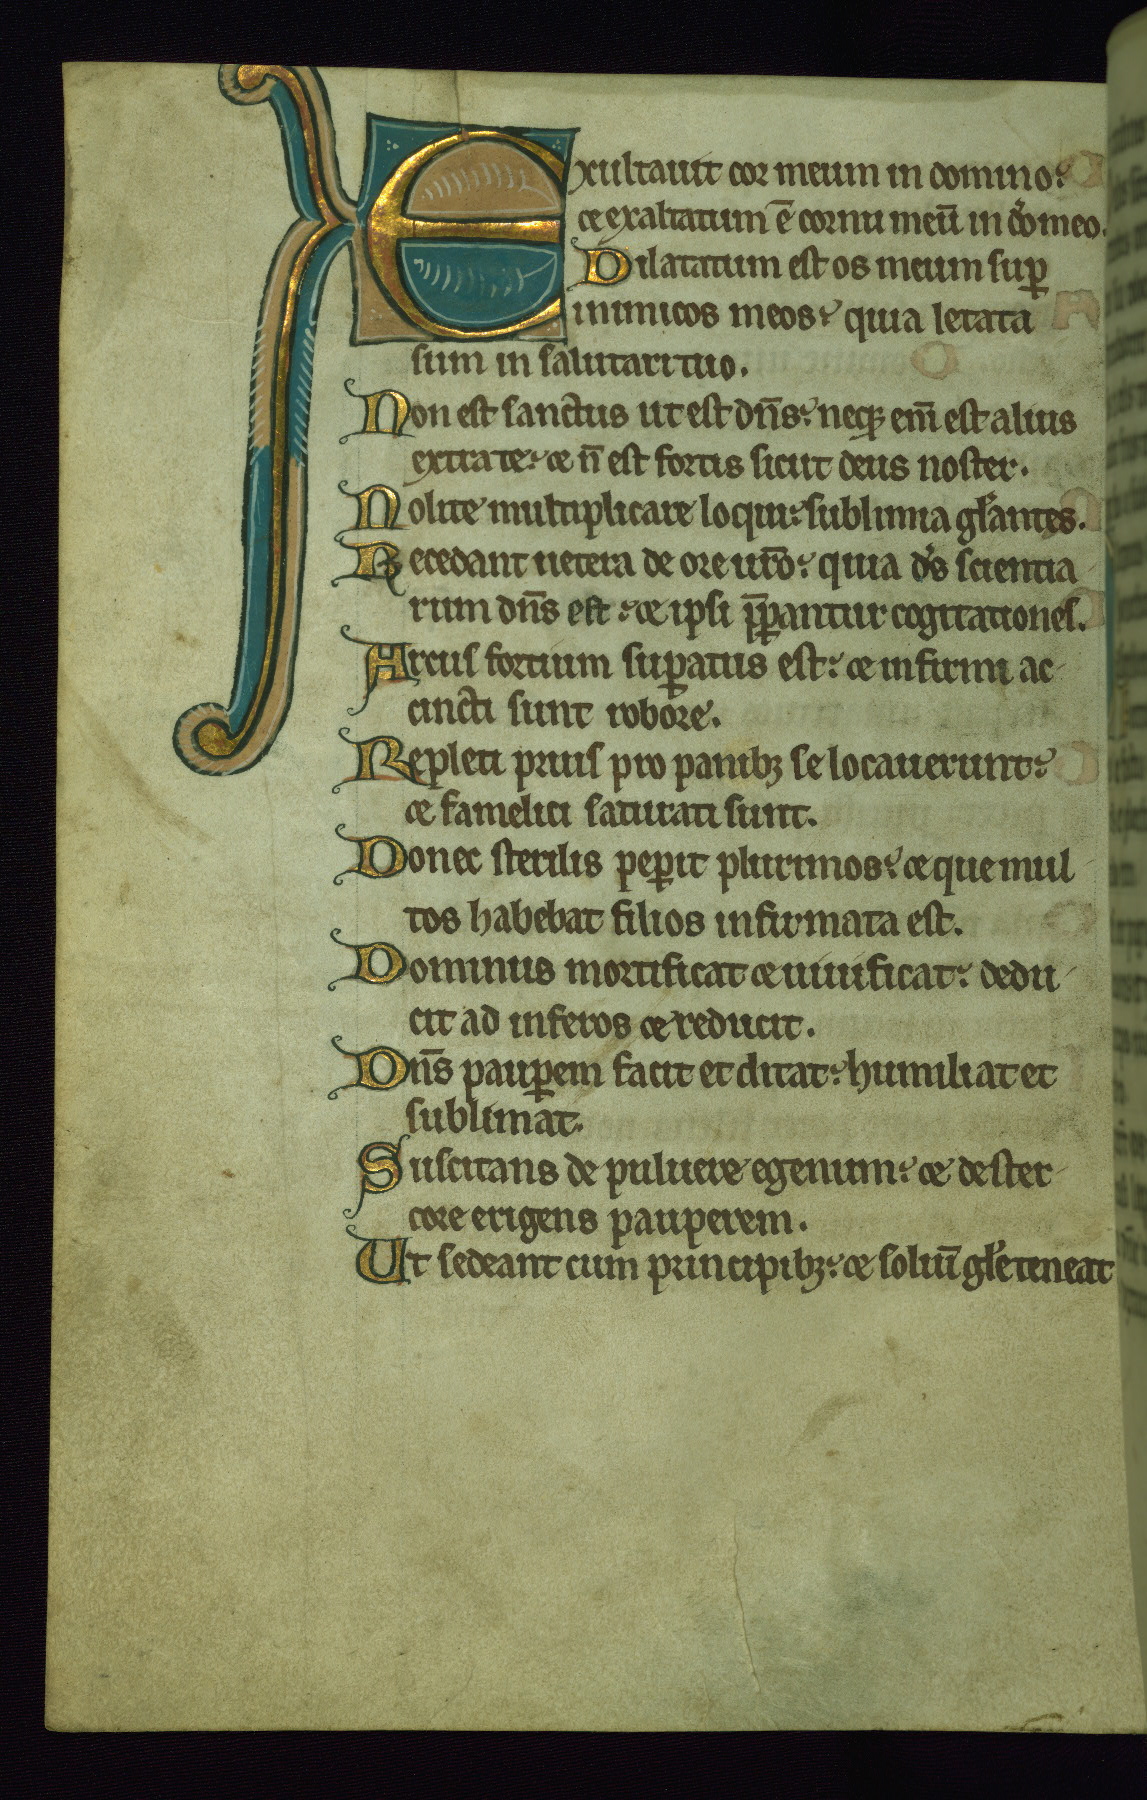 Exultauit cor meum in domino:
et exaltatum ē cornu meū in dō meo.
Dilatatum est os meum sup̱
inimicos meos: quia letata
sum in salutari tuo.
Non est sanctus ut est dn̄s: neqꝫ em̄ est alius
extra te: et n̄ est fortis sicut deus noster.
Nolite multiplicare loqui: sublimia gl̄antes.
Recedant uetera de ore ur̄o: quia d̄s scientia
rum dn̄s est: et ipsi p̄ꝑantur cogitationes.
Arcus fortium suꝑatus est: et infirmi ac
cincti sunt robore.
Repleti prius pro panibꝫ se locauerunt:
et famelici saturati sunt.
Donec sterilis peꝑit plurimos: et que mul
tos habebat filios infirmata est.
Dominus mortificat et uiuificat: dedu
cit ad inferos et reducit.
Dn̄s pauꝑem facit et ditat: humiliat et
sublimat.
Suscitans de puluere egenum: et de ster
core erigens pauperem.
Ut sedeant cum principibꝫ: et soliū gl̄e teneat